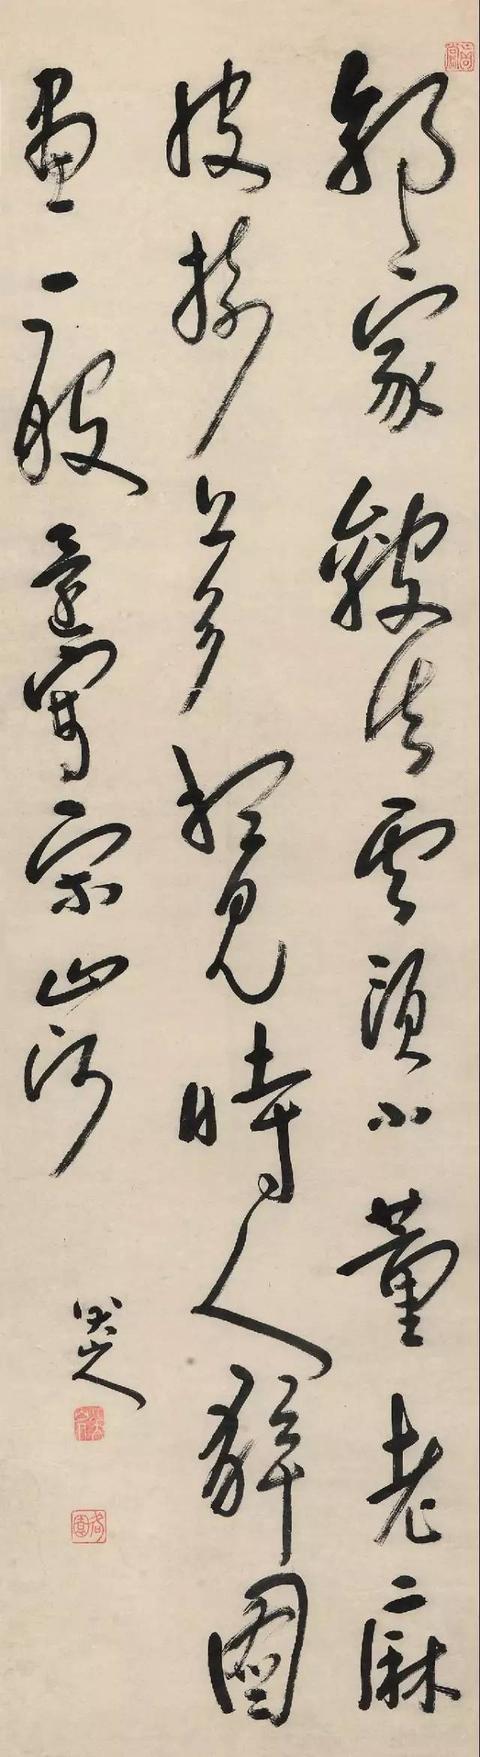 郭家皴法雲頭小董老麻
皮樹上多想見時人解圖
畫一般還寫宋山河
八大山人